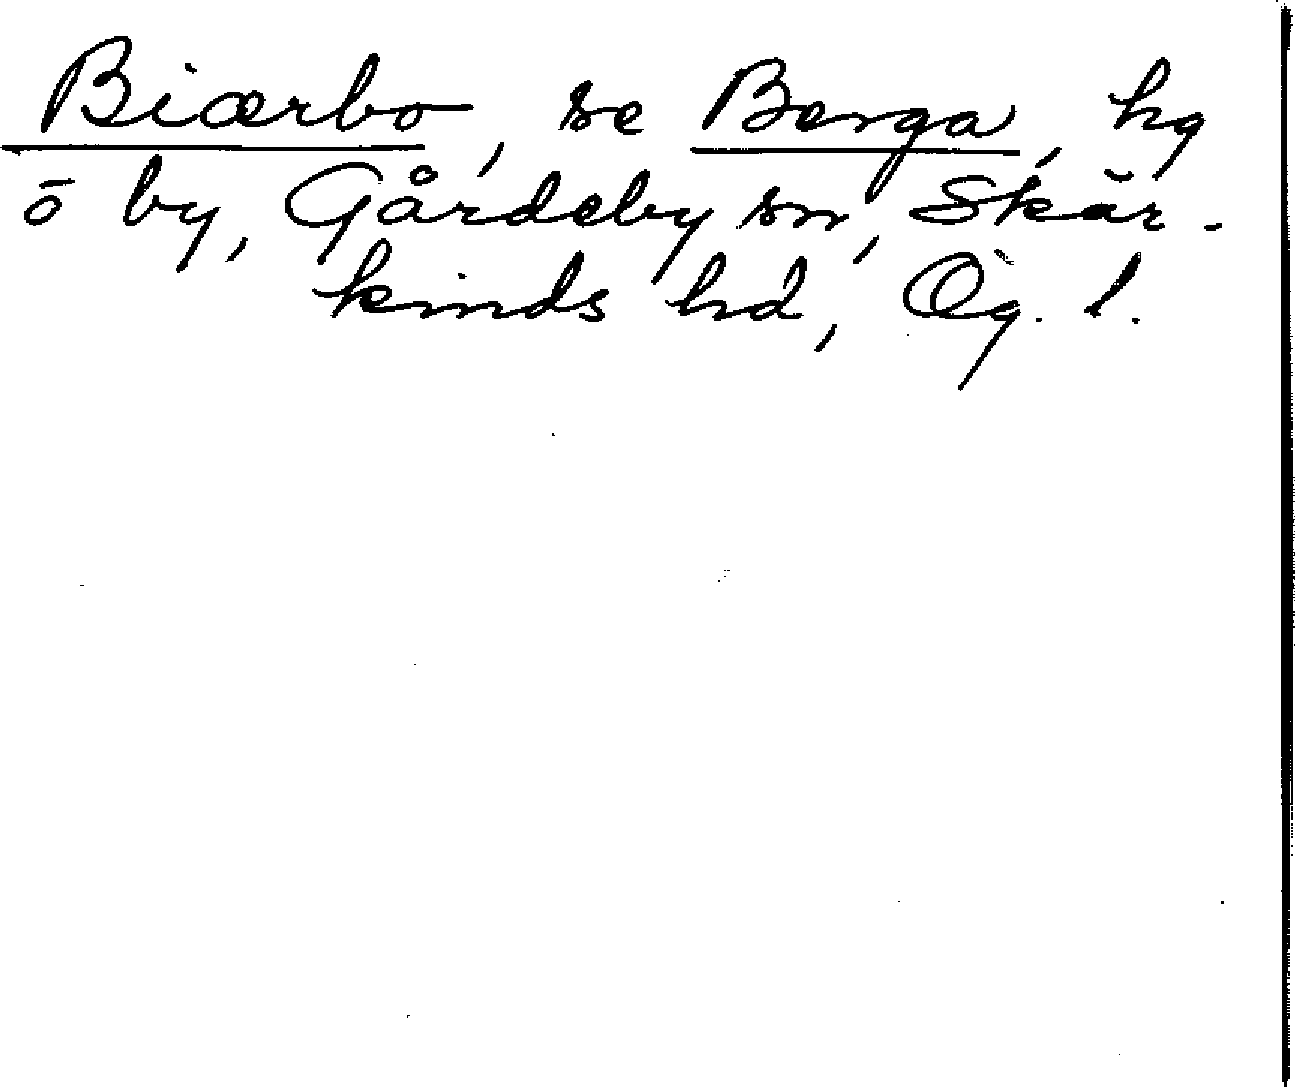 Biærbo, se Berga, hg
o by, Gårdeby sn, Skär-
kinds hd, Ög. l.